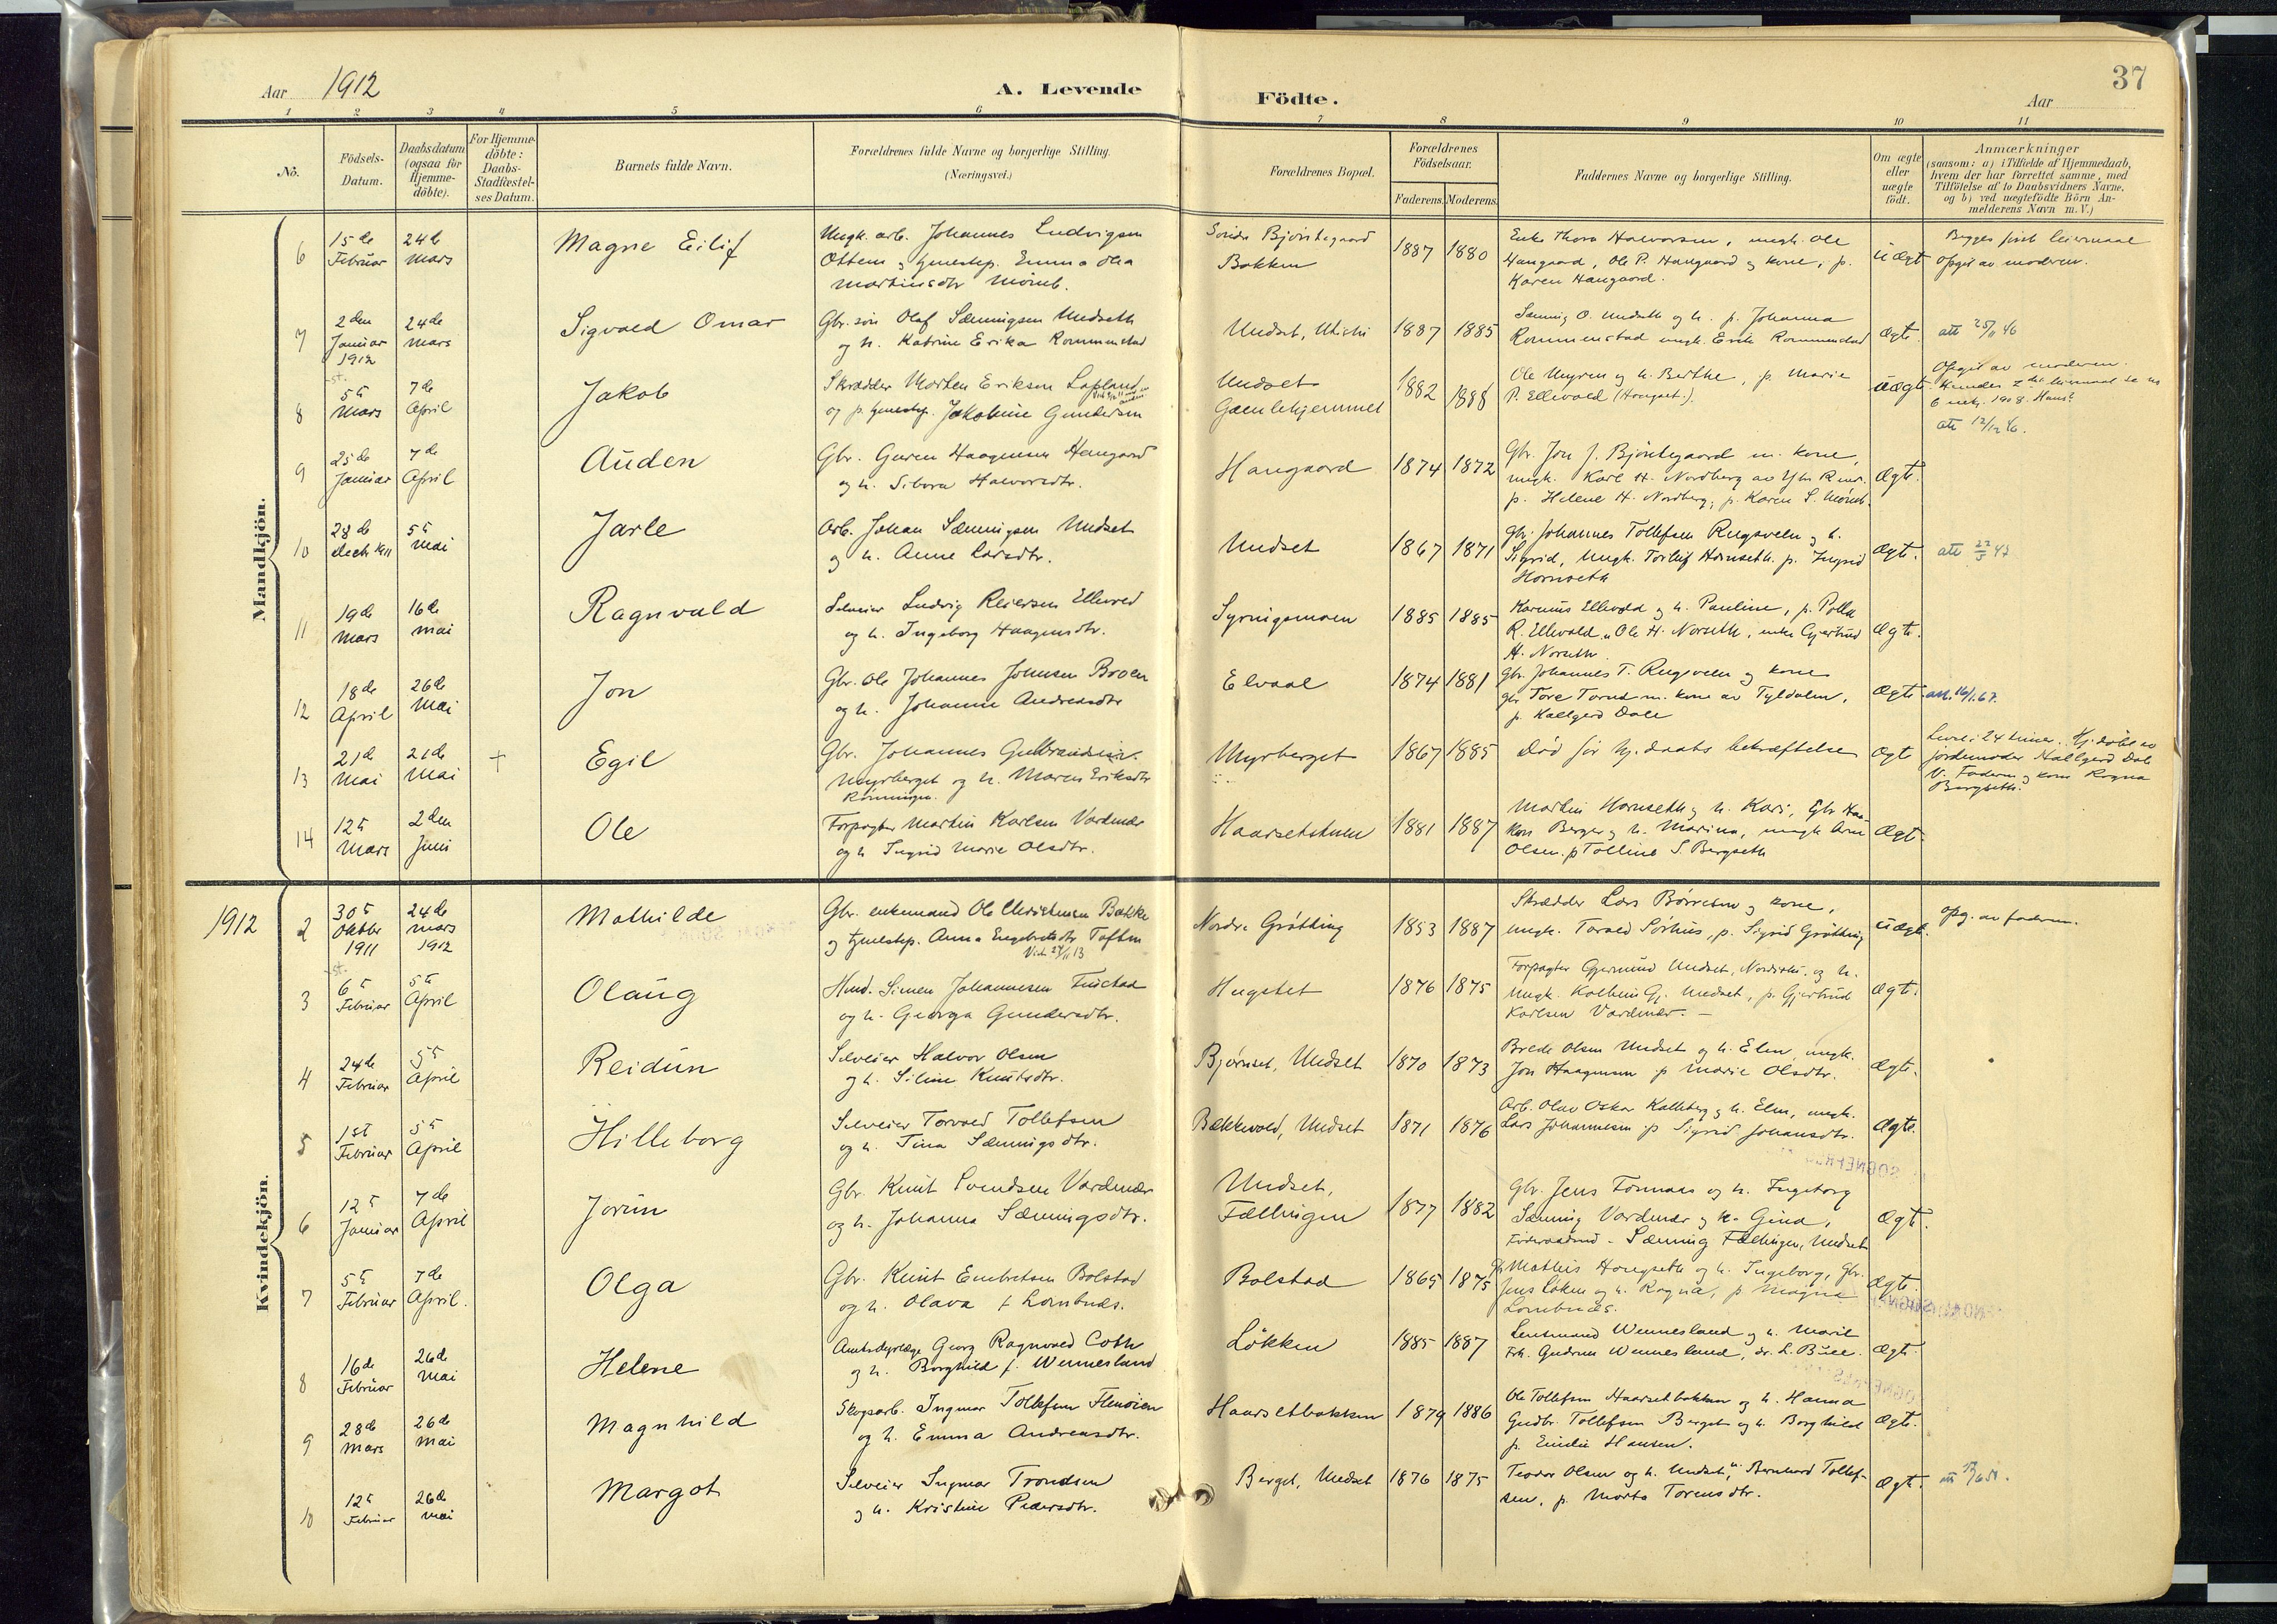 37
Aar 1912
A. Levende
Födte.
Aar
1 2 3 4 5 6 7 8 9 10 11
Nô.
Födsels-
Datum.
Daabsdatum
(ogsaa for
Hjemme-
döbte).
For Hjemme-
döbte:
Daabs-
Stadfæstel-
ses Datum.
Barnets fulde Navn.
Forældrenes fulde Navne og borgerlige Stilling.
(Næringsvei.)
Forældrenes Bopæl.
Forældrenes
Födselsaar.
Faderens. Moderens.
Faddernes Navne og borgerlige Stilling.
Om ægte
eller
uægte
født.
Anmærkninger
(saasom: a) i Tilfælde af Hjemmedaab,
hvem der har forrettet samme, med
Tilföielse af to Daabsvidners Navne,
og b) ved uægtefödte Börn An-
melderens Navn m. V.)
Mandkjön.
6
15de
Februar
24de
Mars
Magne Eilif
Ungk. arb. Johannes Ludvigsen
Ottem og tjenestep. Emma Olea
Martinsdtr
Bakken
1887 1880
Haugaard, Ole P. Haugaard og kone, p.
Karen Haugaard.
üægt
Begges første leiermaal
opgit av moderen.
7
2den
Januar
1912
24de
Mars
Sigvald Omar
Gbr. søn Olaf Sæmingsen Undseth
og h. Katrine Erika Rommenstad
Undset, Utistu
1887 1885
Sæming O. Undseth og h. p. Johanna
Rommenstad ungk. Erik Rommenstad
Ægte.
att 25/11 46
8
5te
Mars
7de
April
Jakob
Skrædder Morten Eriksen
og p. tjenestep. Jakobine Gundersen
Undset
Gamlehjemmet
1882 1888
Ole Myren og h. Berthe, p. Marie
P. Ellevold (Haugset).
üægt.
Opgit av moderen.
att 12/12 46.
9
25de
Januar
7de
April
Auden
Gbr. Guren Haagensen Haugaard
og h. Sibora Halvorsdtr.
Haugaard
1874 1872
Gbr. Jon J. Bjøntegaard m. kone,
ungk. Karl H. Nordberg av
p. Helene H. Nordberg, p. Karen S.
Ægte.
10
28de
Decb. 1911
5te
Mai
Jarle
Arb. Johan Sæmingsen Undset
og h. Anne Larsdtr.
Undset
1867 1871
Gbr. Johannes Tollefsen Rugsveen og h.
Sigrid, Ungk. Torleif Hornseth. p. Ingrid
Hornseth
Ægte.
att 22/5 47
11
19de
Mars
16de
Mai
Ragnvald
Selveier Ludvig Reiersen Ellevold
og h. Ingeborg Haagensdtr.
Syrnigsmoen
1885 1885
Ellevold og h. Pauline, p.
R. Ellevold, Ole H. Norseth, enke Gjertrud
H. Norseth
Ægte.
12
18de
April
26de
Mai
Jon
Gbr. Ole Johannes Johnsen Broen
og h. Johanne Andreasdtr
Elvaal
1874 1881
Gbr. Johannes T. Rugsveen og kone
gbr Tore m. kone av Tyldalen,
p. Hallgerd Dale
Ægte.
att. 16/1.67.
13
21de
Mai
21de
Mai
+
Egil
Gbr. Johannes Gulbrandsen
Myrberget og h. Maren Eriksdtr
Rønningen.
Myrberget
1867 1885
Død før hj.daabs bekræftelse
Ægte
Levet i 24 timer. Hj. døbt av
jordemoder Hallgerd Dale
V. Faderen og kone Ragna
Bergseth.
14
12te
Mars
2den
Juni
Ole
Forpagter Martin Karlsen Vardenær
og h Ingrid Marie Olsdtr.
Haarsetstuen
1881 1887
Martin Hornseth og h. Kari, Gbr. Haa-
kon Berger og h. Marina, ungk Arne
Olsen. p Tolline S. Bergseth
Ægte.
Kvindekjön.
1912
2
30te
Oktbr
1911
24de
mars
1912
Mathilde
Gbr. enkemand Ole Christensen Bakke
og tjenestep. Anna Engebretsdtr Toften
Nordre Grøtting
1853 1887
Skrædder Lars Børresen og kone,
ungk. Torvald Sørhus, p. Sigrid Grøtting
üægt.
opg. av faderen.
3
6te
Februar
5te
April
Olaug
Hmd. Simen Johannesen Finstad
og h. Georga Gundersdtr.
Hugstet
1876 1875
Forpagter Gjermund Undset, og h.
Ungk. Kolbein Gj. Undset, p. Gjertrud
Karlsen Vardenær. —
Ægte.
4
24de
Februar
5te
April
Reidun
Selveier Halvor Olsen
og h. Siline Knutsdtr.
Bjørnset, Undset
1870 1873
Brede Olsen Undset og h. Elen, ungk.
Jon Haagensen p Marie Olsdtr.
Ægte.
5
1ste
Februar
5te
April
Hilleborg
Selveier Torvald Tollefsen
og h. Tina Sæmingsdtr.
Bækkevold, Undset
1871 1876
Arb. Olav Oskar Kalleberg og h. Elen, ungk.
Lars Johannesen p Sigrid Johansdtr.
Ægte.
6
12te
Januar
7de
April
Jorun
Gbr. Knut Svendsen Vardenær
og h. Johanna Sæmingsdtr.
Undset,
Fællingen
1877 1882
Gbr. Jens Tonnaas og h. Ingeborg
Sæming Vardenær og h. Gina,
Sæming Fællingen, Undset
Ægte.
7
5te
Februar
7de
April.
Olga
Gbr. Knut Embretsen Bolstad
og h. Olava f Lombnæs.
Bolstad
1865 1875
Mathis Haugseth og h. Ingeborg, Gbr.
Jens Løken og h. Ragna, p Magna
Lombnæs.
Ægte.
8
16de
Februar
26de
Mai
Helene
Amtsdyrlæge Georg Ragnvald Coth
og h. Borghild f. Wennesland
Løkken
1885 1887
Lensmand Wennesland og h. Marie
Frk. Gudrun Wennesland, dr. L. Bull.
Ægte.
9
28de
Mars
26de
Mai
Magnhild
Skogsarb. Ingmar Tollefsen Flenøien
og h. Emma Andreasdtr.
Haarsetbakken
1879 1886
Ole Tollefsen Haarsetbakken og h. Hanna
Gudbr. Tollefsen Berget og h. Borghild
p. Emilie Hansen.
Ægte.
10
12te
Februar
26de
Mai
Margot
Selveier Ingmar Trondsen
og h. Kristine Pedersdtr.
Berget, Undset
1876 1875
Teodor Olsen og h. Undset, Bernhard Tollef-
sen, p. Marta Torensdtr.
Ægte.